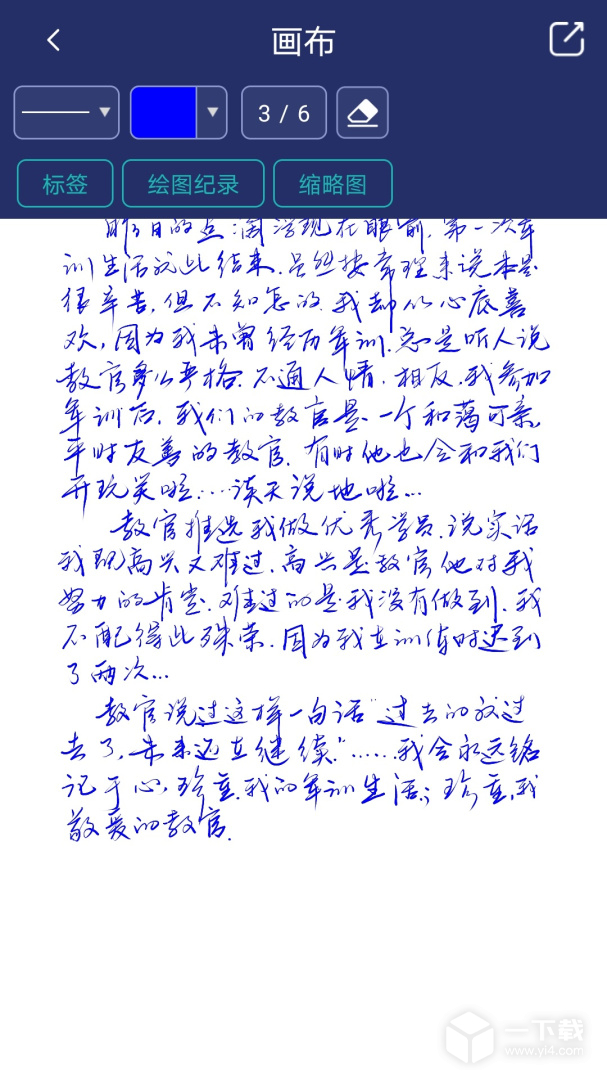 画布
3 / 6
标签
绘图纪录
缩略图
昨日的点滴浮现在眼前,第一次军
训生活就此结束.虽然按常理来说本是
很辛苦,但不知怎的.我却从心底喜
欢,因为我未曾经历军训.总是听人说
教官多么严格.不通人情.相反.我参加
军训后.我们的教官是一个和蔼可亲,
平时友善的教官.有时他也会和我们
开玩笑啦....谈天说地啦...
教官推选我做优秀学员.说实话
我既高兴又难过.高兴是教官他对我
努力的肯定.难过的是我没有做到.我
不配得此殊荣.因为我在训练时迟到
了两次...
教官说过这样一句话"过去的放过
去了,未来还在继续."......我会永远铭
记于心,珍重.我的军训生活;珍重,我
敬爱的教官.
一下载
www.yi4.com